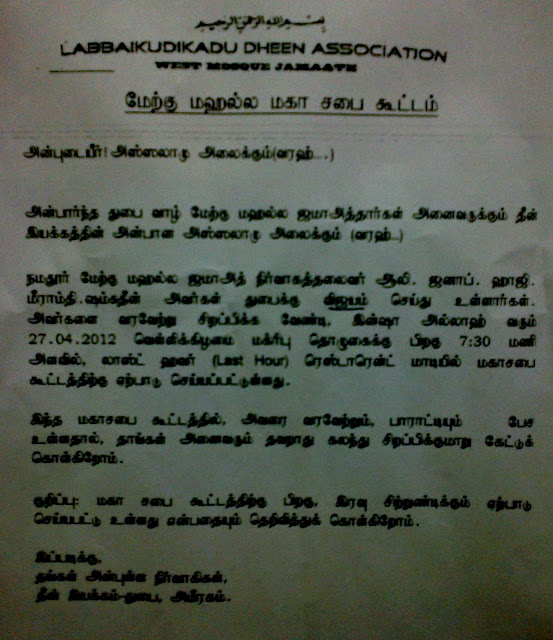 بسم الله الرحمن الرحيم
LABBAIKUDIKADU DHEEN ASSOCIATION
WEST MOSQUE JAMAATH
மேற்கு மஹல்ல மகா சபை கூட்டம்
அன்புடையீர்! அஸ்ஸலாமு அலைக்கும்(வரஹ்...,)
அன்பார்ந்த துபை வாழ் மேற்கு மஹல்ல ஜமாஅத்தார்கள் அனைவருக்கும் தீன்
இயக்கத்தின் அன்பான அஸ்ஸலாமு அலைக்கும் (வரஹ்...)
நமதூர் மேற்கு மஹல்ல ஜமாஅத் நிர்வாகத்தலைவர் ஆலி. ஜனாப். ஹாஜி.
மீராம்தி.ஷம்சுதீன் அவர்கள் துபைக்கு விஜயம் செய்து உள்ளார்கள்.
அவர்களை வரவேற்று சிறப்பிக்க வேண்டி, இன்ஷா அல்லாஹ் வரும்
27.04.2012 வெள்ளிக்கிழமை மக்ரிபு தொழுகைக்கு பிறகு 7:30 மணி
அளவில், லாஸ்ட் ஹவர் (Last Hour) ரெஸ்டாரென்ட் மாடியில் மகாசபை
கூட்டத்திற்கு ஏற்பாடு செய்யப்பட்டுள்ளது.
இந்த மகாசபை கூட்டத்தில், அவரை வரவேற்றும், பாராட்டியும் பேச
உள்ளதால், தாங்கள் அனைவரும் தவறாது கலந்து சிறப்பிக்குமாறு கேட்டுக்
கொள்கிறோம்.
குறிப்பு: மகா சபை கூட்டத்திற்கு பிறகு, இரவு சிற்றுண்டிக்கும் ஏற்பாடு
செய்யபட்டு உள்ளது என்பதையும் தெரிவித்துக் கொள்கிறோம்.
இப்படிக்கு,
தங்கள் அன்புள்ள நிர்வாகிகள்,
தீன் இயக்கம்-துபை, அமீரகம்.